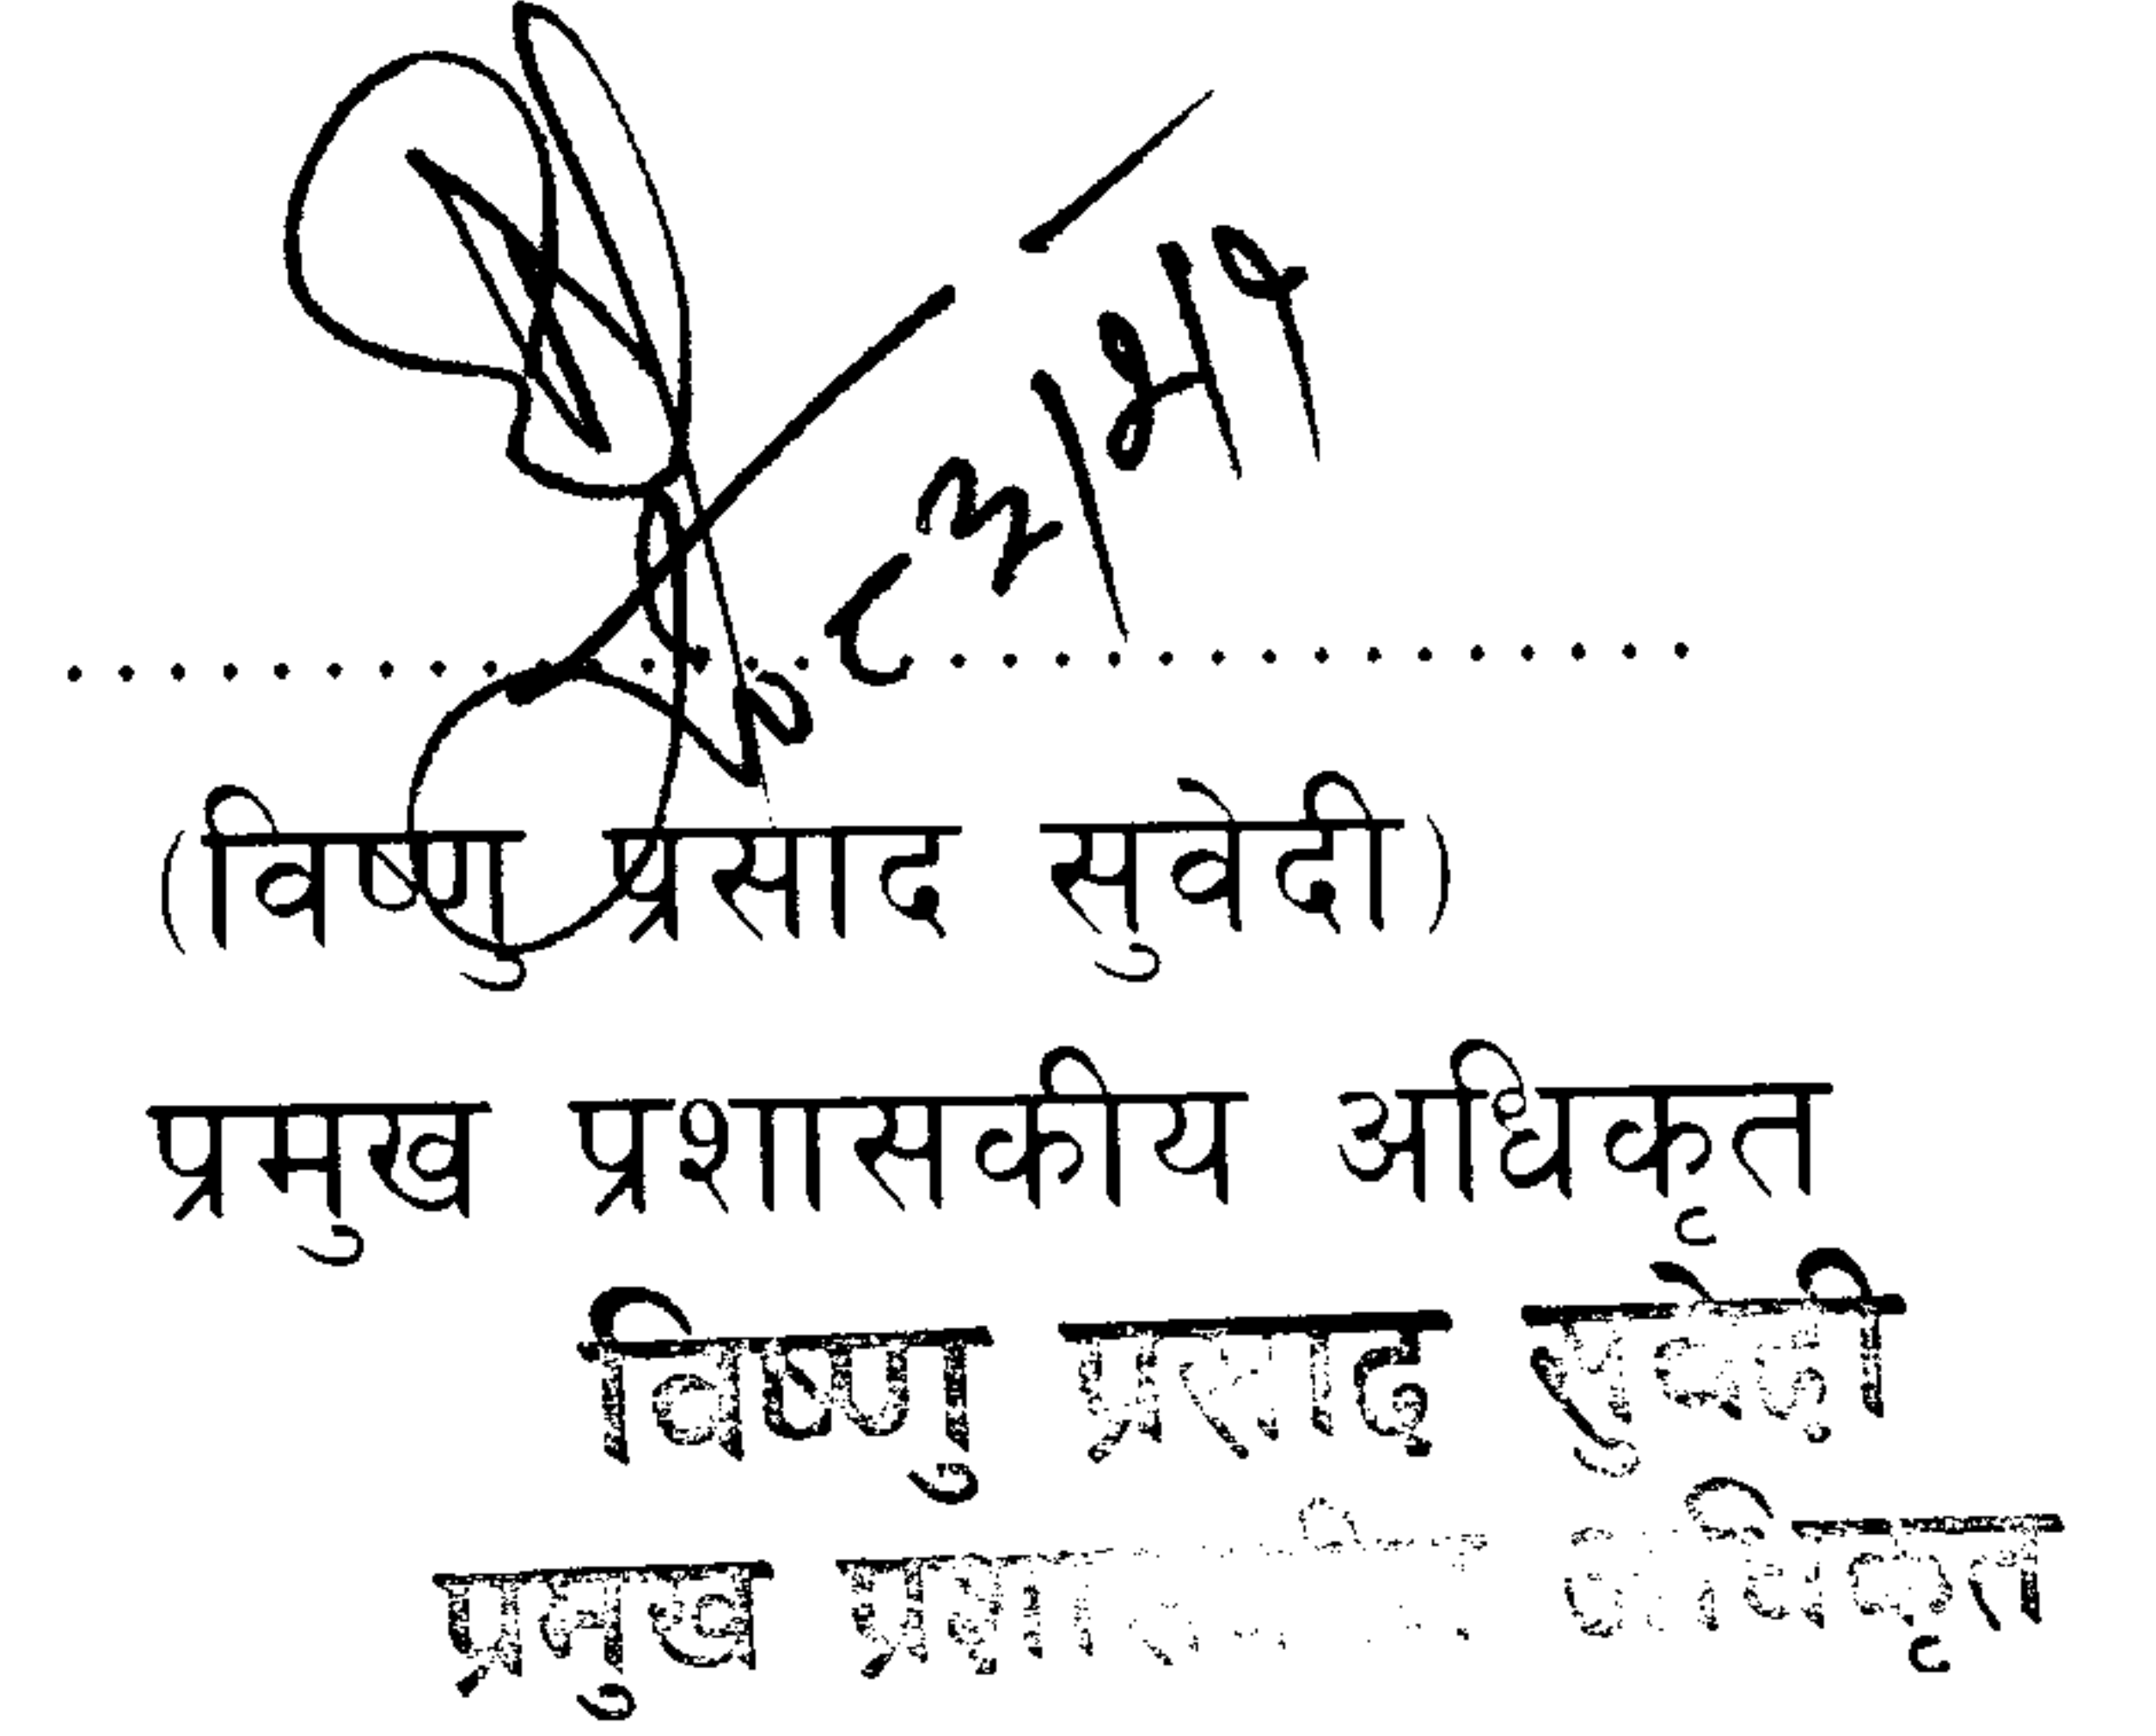 (विष्णु प्रसाद सुवेदी)
प्रमुख प्रशासकीय अधिकृत
विष्णु प्रसाद सुवेदी
प्रमुख प्रशासकीय अधिकृत